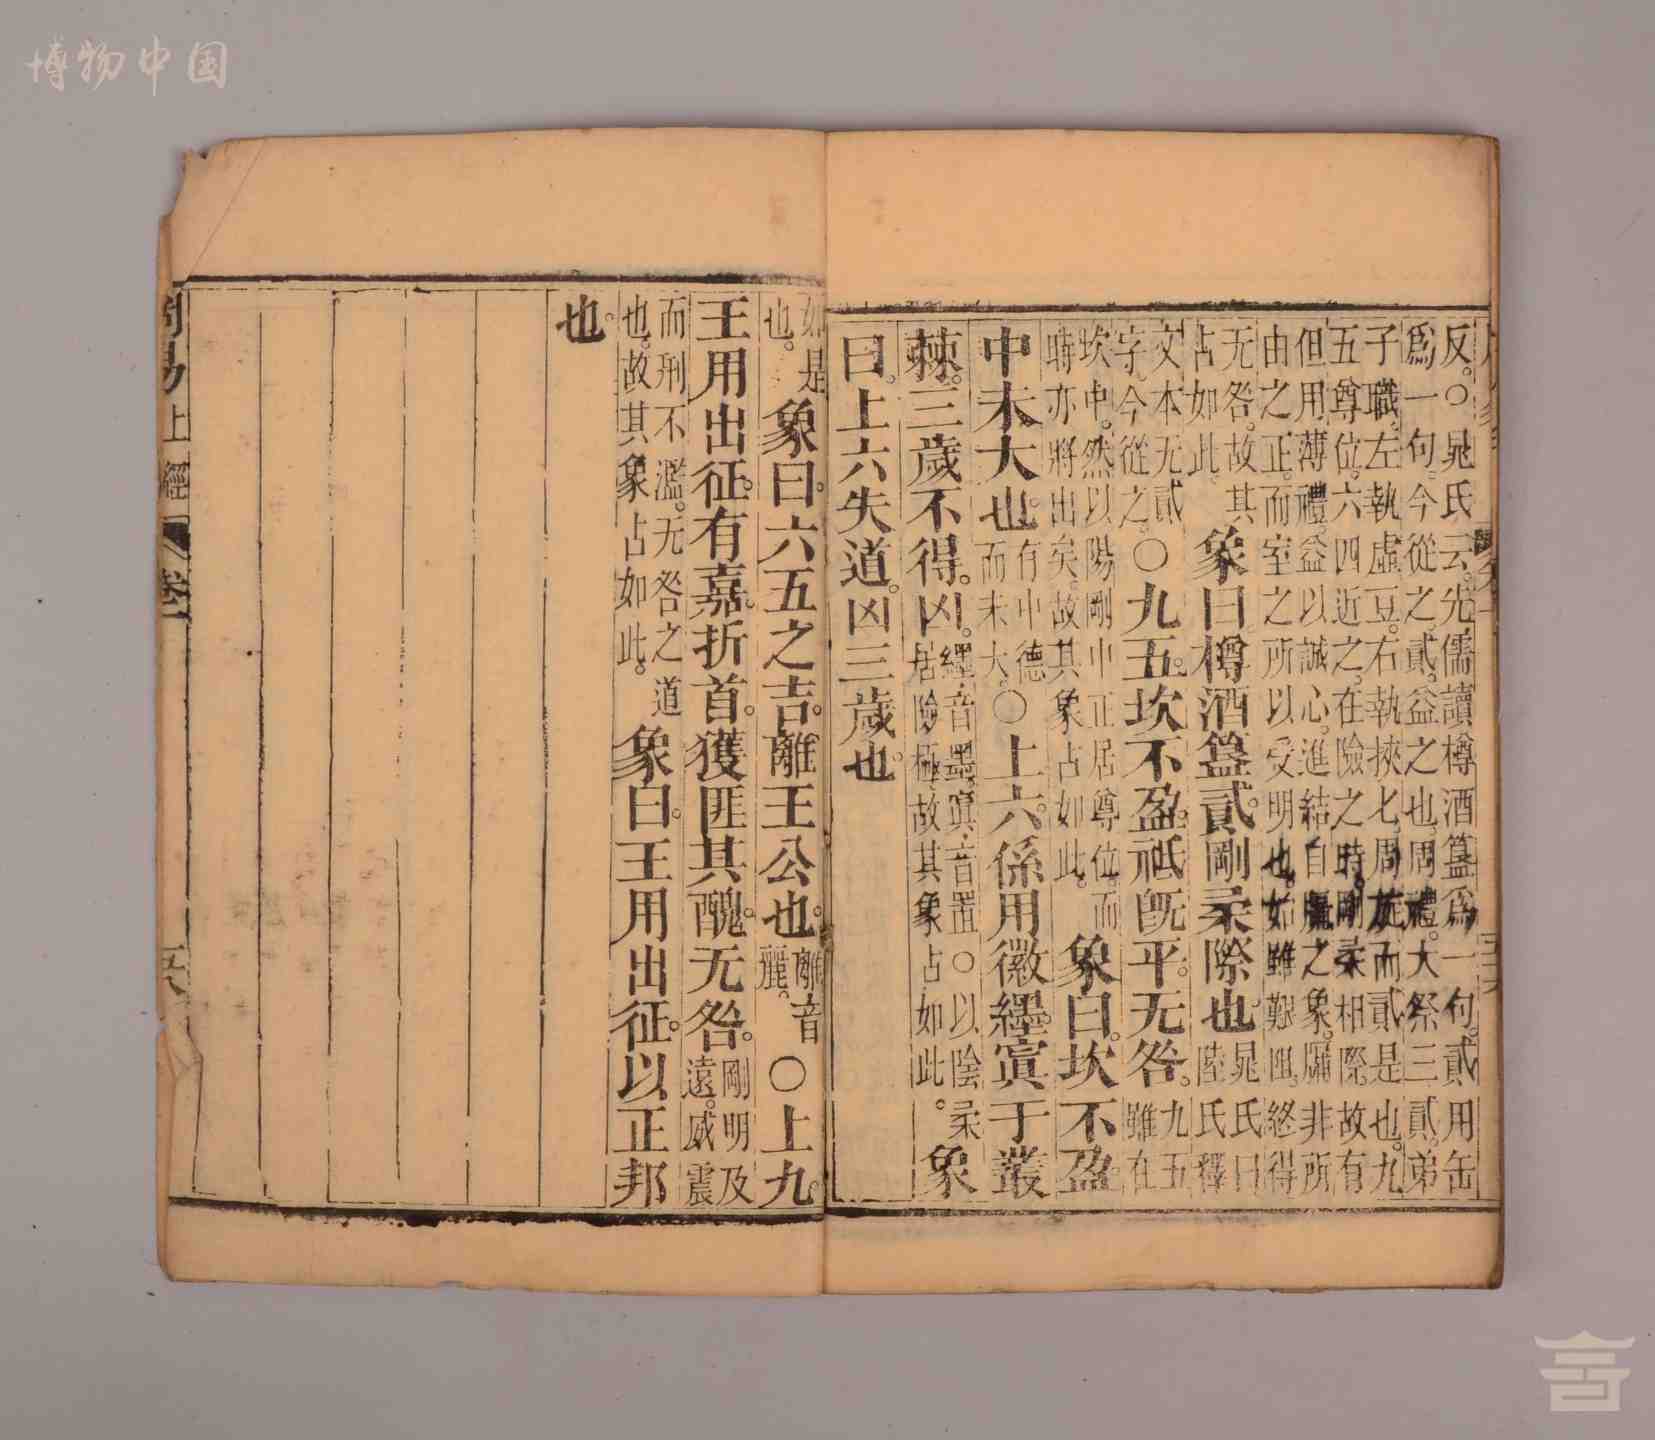 博物中国
反。○晁氏云。先儒讀樽酒簋爲一句。貳用缶
爲一句。今從之。貳。益之也。周禮。大祭三貳。弟
子職。左執虛豆。右執挾匕。周旋而貳。是也。九
五尊位。六四近之。在險之時。剛柔相際。故有
但用薄禮。益以誠心。進結自牖之象。牖非所
由之正。而室之所以受明也。始雖艱阻。終得
无咎。故其
占如此。
象曰樽酒簋貳。剛柔際也。
晁氏曰
陸氏釋
文本无貳
字。今從之。
○九五。坎不盈。祗旣平。无咎。
九五
雖在
坎中。然以陽剛中正居尊位。而
時亦將出矣。故其象占如此。
象曰。坎不盈。
中未大也。
有中德
而未大。
○上六。係用徽纆。寘于叢
棘。三歲不得。凶。
纆。音墨。寘。音置。○以陰柔
居險極。故其象占如此。
象
曰。上六失道。凶三歲也。
如是
也。
象曰。六五之吉。離王公也。
離音
麗。
○上九。
王用出征。有嘉。折首。獲匪其醜。无咎。
剛明及
遠。威震
而刑不濫。无咎之道
也。故其象占如此。
象曰。王用出征。以正邦
也。
易上經
卷一